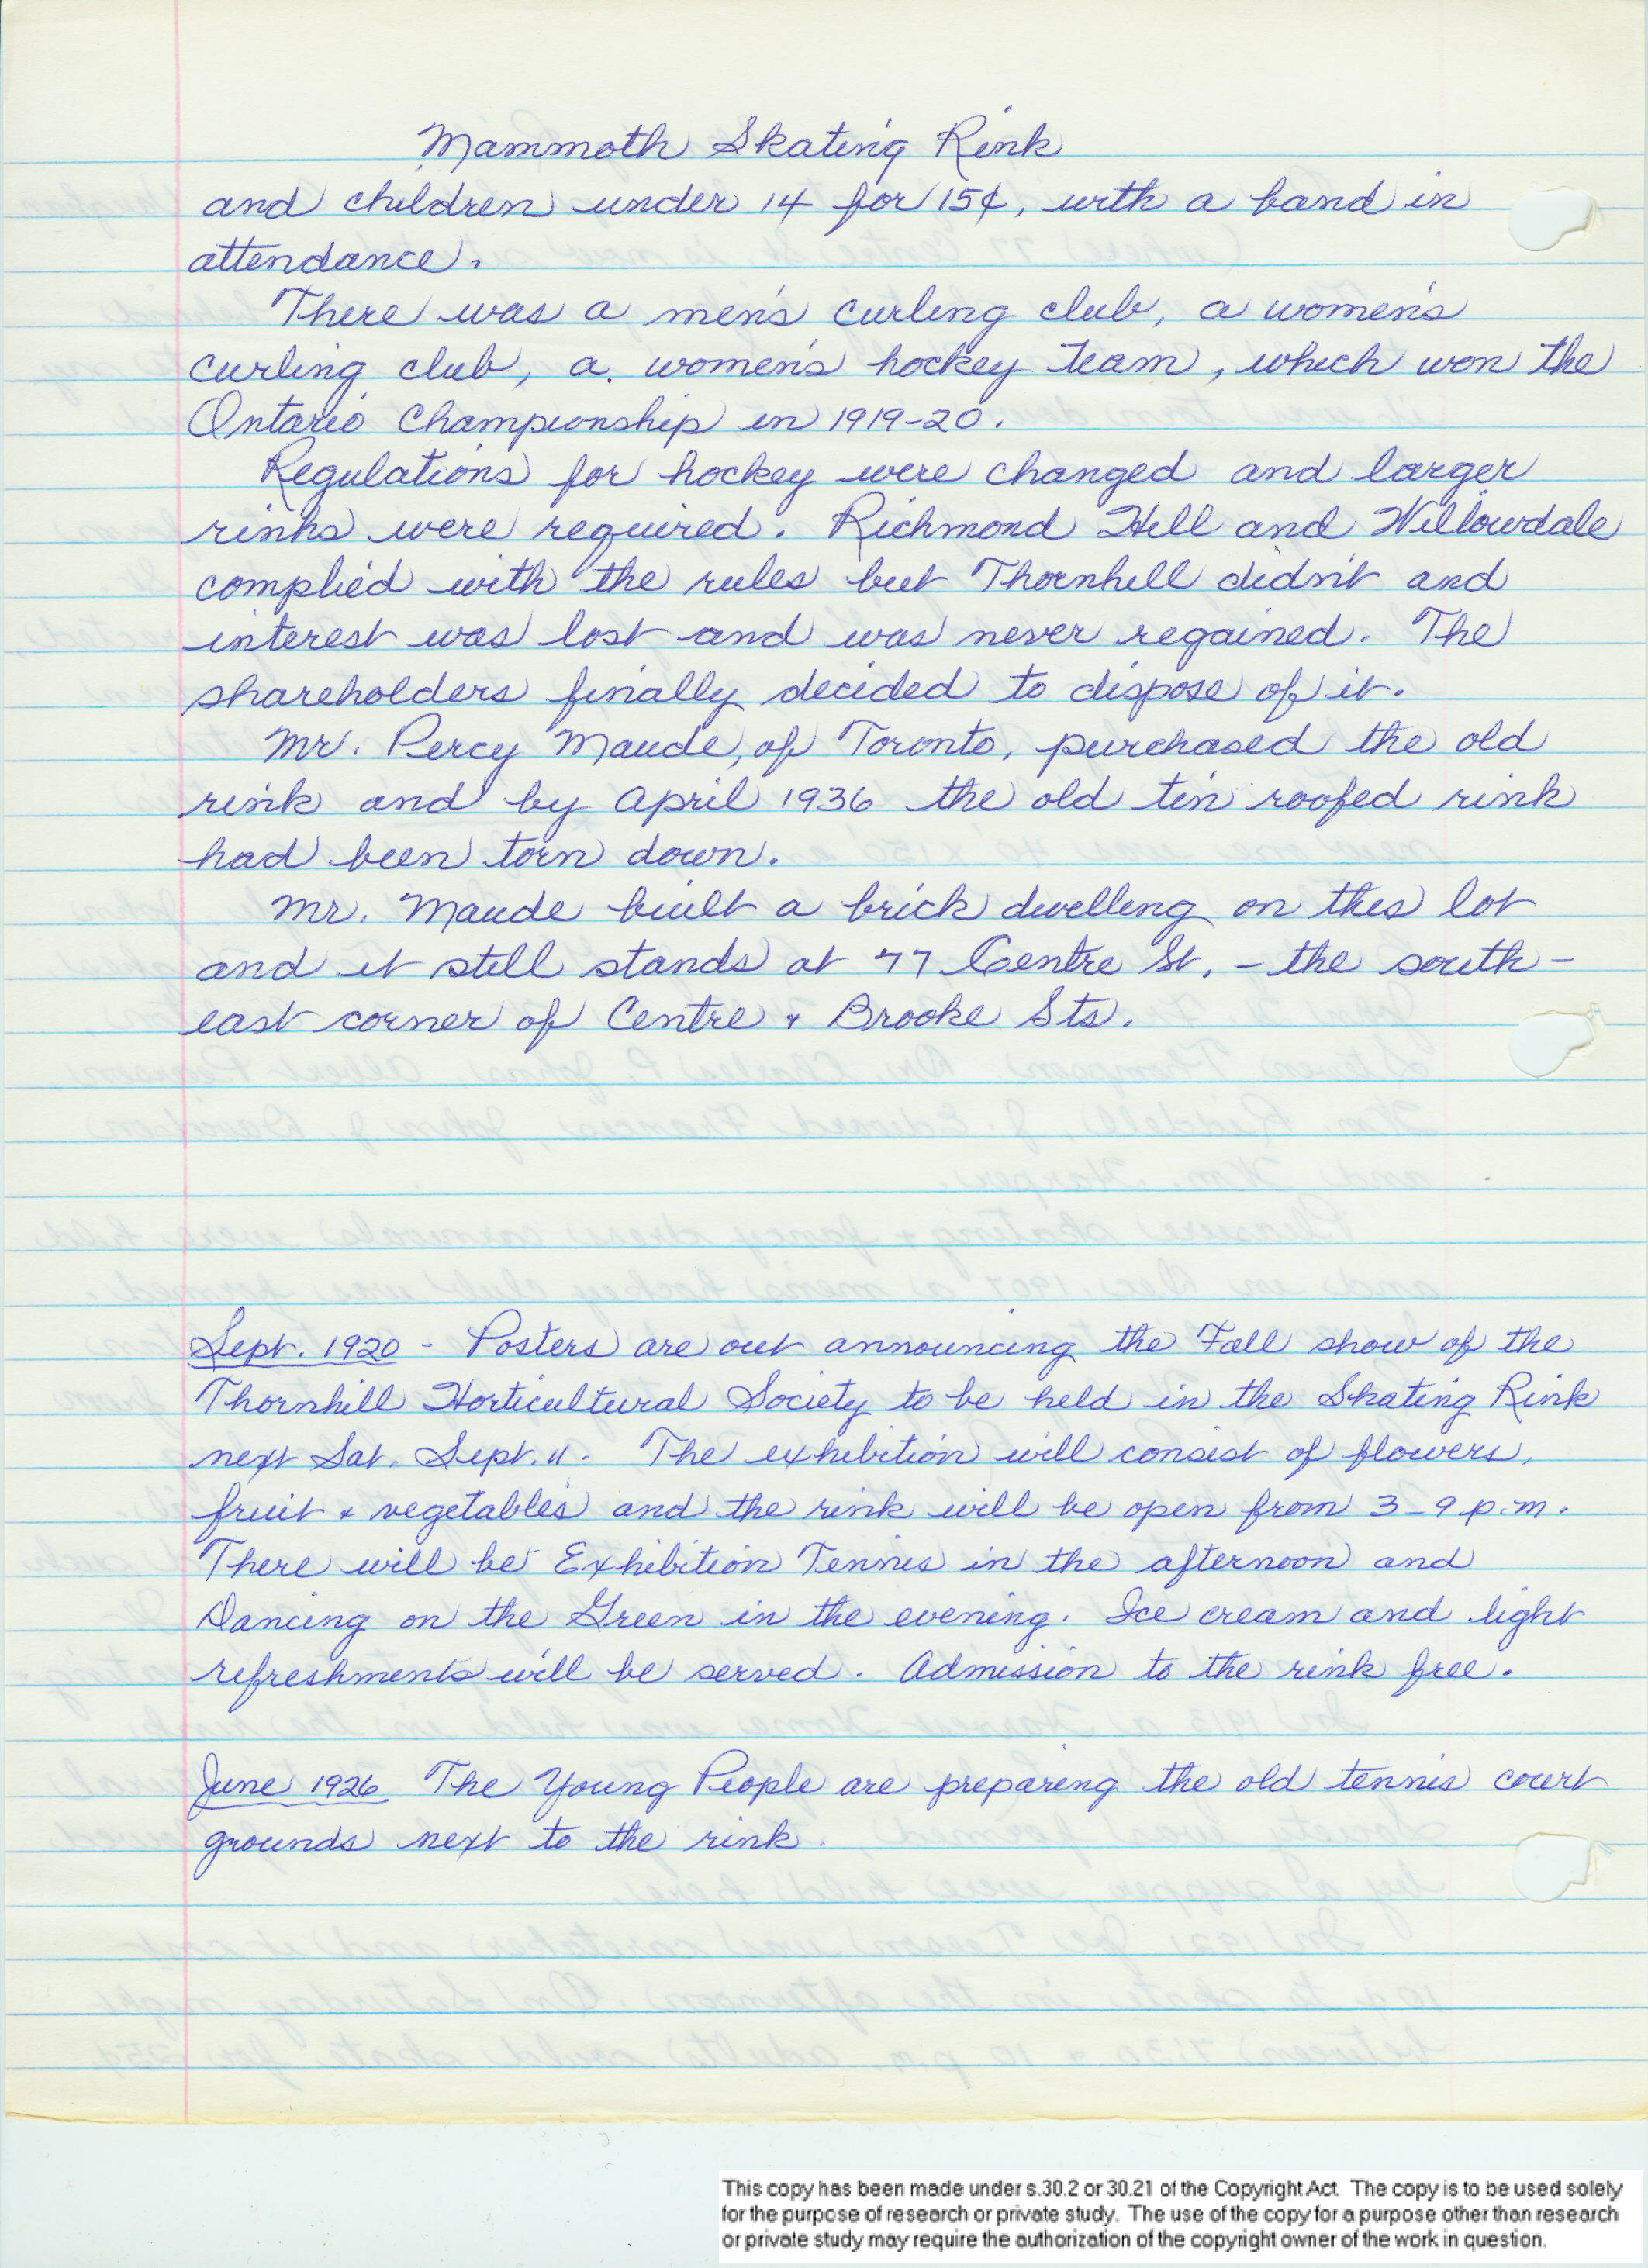 Mammoth Skating Rink
and children under 14 for 15¢, with a band in
attendance.
There was a men's curling club, a women's
curling club, a women's hockey team, which won the
Ontario Championship in 1919-20.
Regulations for hockey were changed and larger
rinks were required. Richmond Hill and Willowdale
complied with the rules but Thornhill didn't and
interest was lost and was never regained. The
shareholders finally decided to dispose of it.
Mr. Percy Maude, of Toronto, purchased the old
rink and by April 1936 the old tin roofed rink
had been torn down.
Mr. Maude built a brick dwelling on this lot
and it still stands at 77 Centre St. - the south-
east corner of Centre & Brooke Sts.
Sept. 1920 - Posters are out announcing the Fall show of the
Thornhill Horticultural Society to be held in the Skating Rink
next Sat. Sept. 11. The exhibition will consist of flowers,
fruit & vegetables and the rink will be open from 3-9 p.m.
There will be Exhibition Tennis in the afternoon and
Dancing on the Green in the evening. Ice cream and light
refreshments will be served. Admission to the rink free.
June 1926 The Young People are preparing the old tennis court
grounds next to the rink.
This copy has been made under s.30.2 or 30.21 of the Copyright Act. The copy is to be used solely
for the purpose of research or private study. The use of the copy for a purpose other than research
or private study may require the authorization of the copyright owner of the work in question.